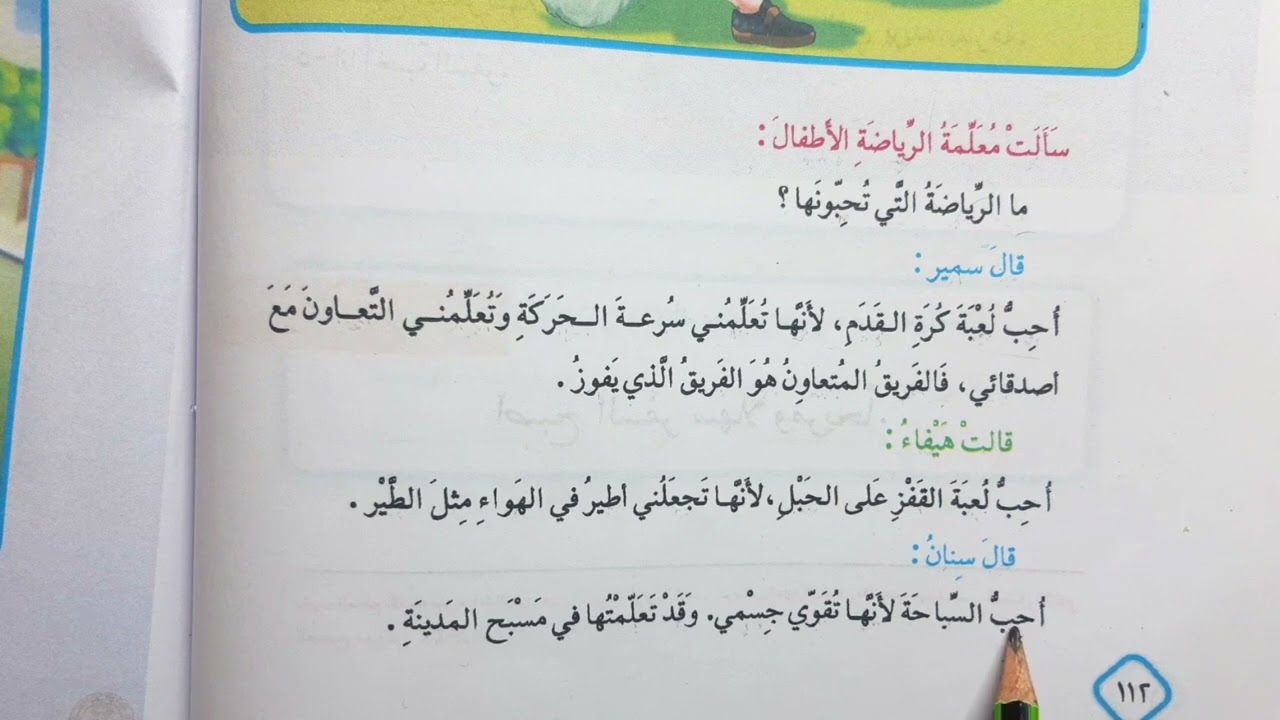 سَأَلَتْ مُعَلِّمَةُ الرِّياضَةِ الأَطفالَ :
ما الرِّياضَةُ الَّتي تُحِبّونَها ؟
قالَ سمير :
أُحِبُّ لُعْبَةَ كُرَةِ القَدَمِ، لأَنَّها تُعَلِّمُني سُرعةَ الحَرَكَةِ وَتُعَلِّمُني التَّعاونَ مَعَ
أصدقائي، فَالفَريقُ المُتعاوِنُ هُوَ الفَريقُ الَّذي يَفوزُ .
قالتْ هَيْفاءُ :
أُحِبُّ لُعبَةَ القَفْزِ عَلى الحَبْلِ، لأَنَّها تَجعَلُني أطيرُ في الهَواءِ مِثلَ الطَّيْرِ .
قالَ سِنانُ :
أُحِبُّ السِّباحَةَ لأَنَّها تُقَوّي جِسْمي. وَقَدْ تَعَلَّمْتُها في مَسْبَحِ المَدينَةِ .
١١٢